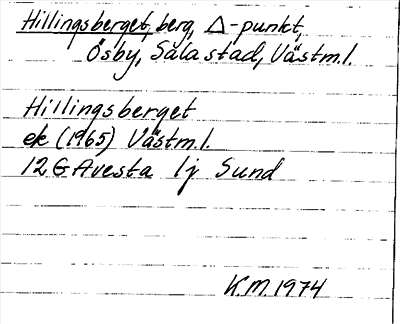 Hillingsberget, berg, △-punkt,
Ösby, Sala stad, Västm.l.
Hillingsberget
ek (1965) Västm.l.
12G Avesta 1j Sund
K.M. 1974